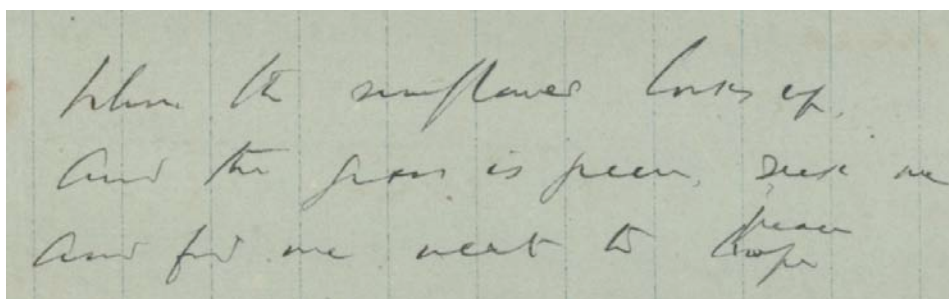 When the sunflower looks up,
And the grass is green, seek me
And find me next to hope
peace